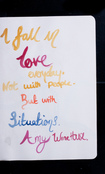 I fall in
love
everyday.
Not with people.
But with
Situations.
Amy Winehouse.